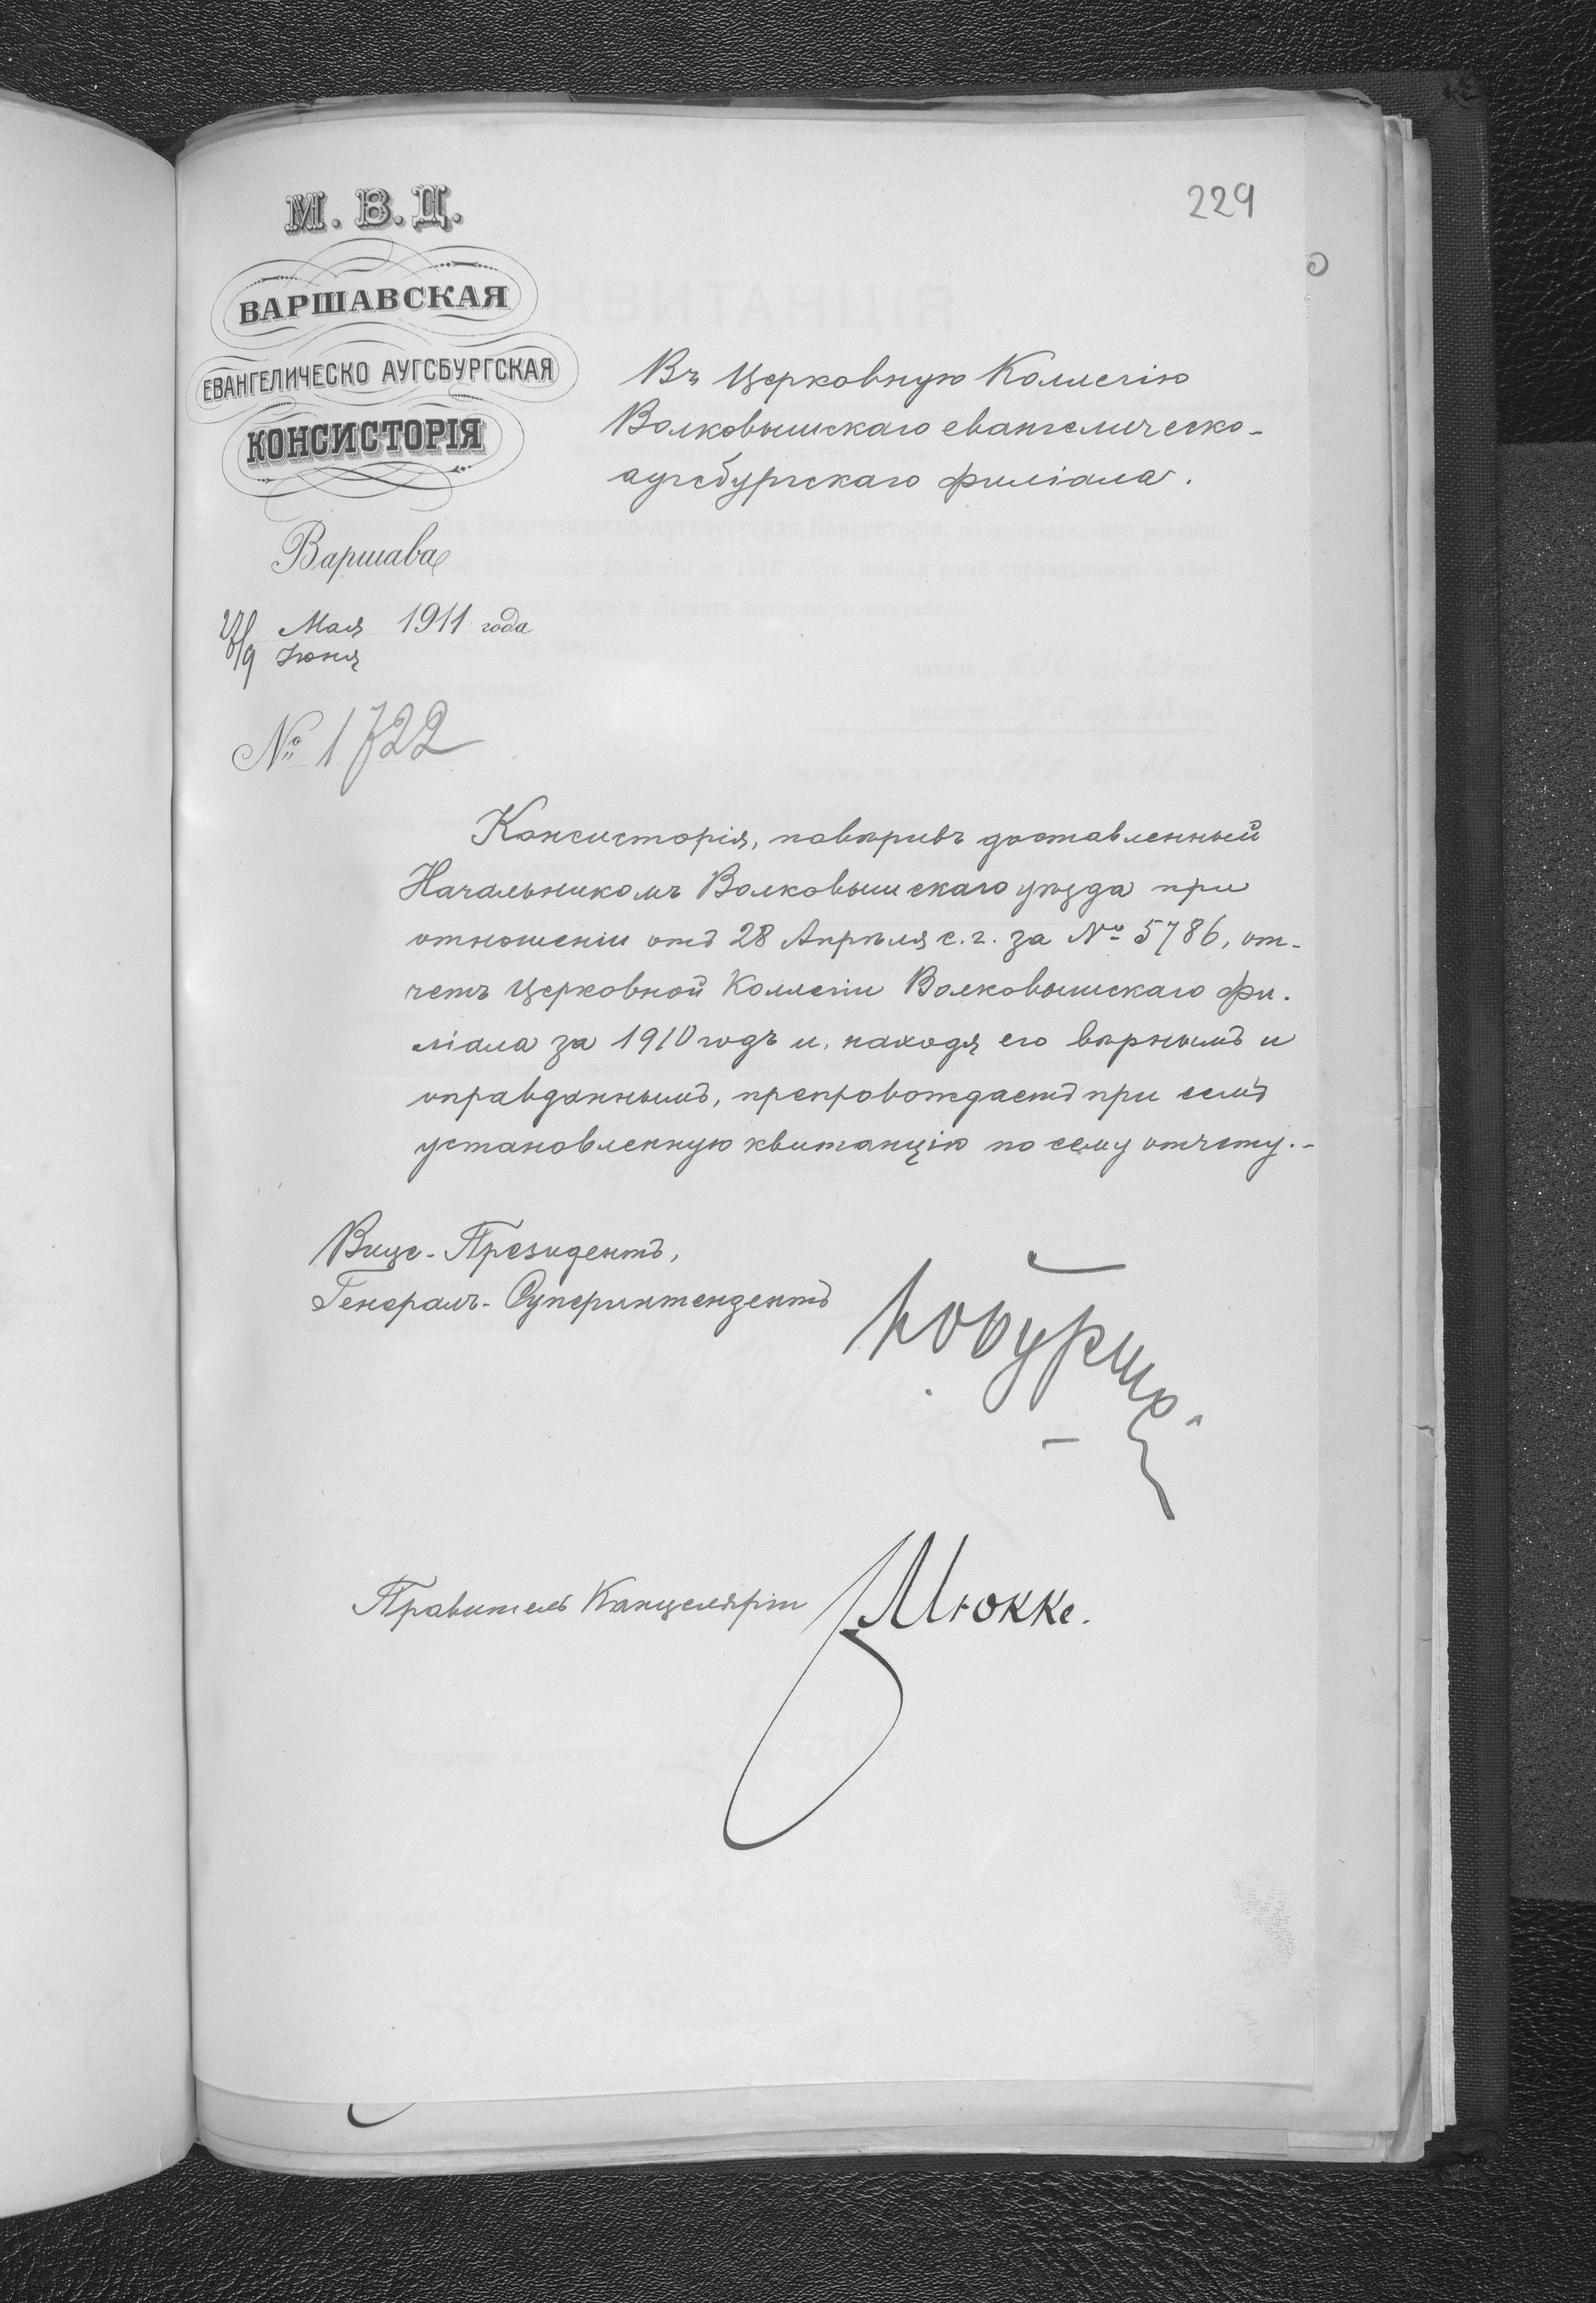 229
М. В. Д.
ВАРШАВСКАЯ
ЕВАНГЕЛИЧЕСКО АУГСБУРГСКАЯ
КОНСИСТОРІЯ
Въ Церковную Коллегію
Волковышскаго евангелическо-
аугсбургскаго филіала.
Варшава
27/9 Мая 1911 года
Іюня
№ 1722
Консисторія, повѣривъ доставленный
Начальникомъ Волковышскаго уѣзда при
отношеніи отъ 28 Апрѣля с. г. за № 5786, от-
четъ Церковной Коллегіи Волковышскаго фи-
ліала за 1910 годъ и, находя его вѣрнымъ и
оправданнымъ, препровождаетъ при семъ
установленную квитанцію по сему отчету.-
Вице-Президентъ,
Генералъ-Суперинтендентъ
Правитель Канцеляріи Мюкке.